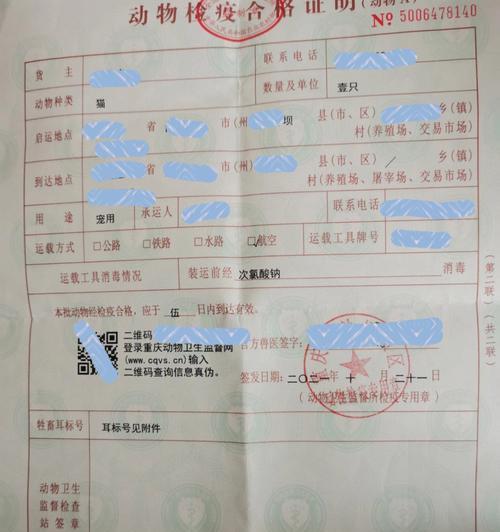 动物检疫合格证明(动物A)
№ 5006478140
货 主 联系电话
动物种类 猫 数量及单位 壹只
启运地点 省 市(州) 坝 县(市、区) 乡(镇)
村(养殖场、交易市场)
到达地点 省 市(州) 县(市、区) / 乡(镇)
村(养殖场、屠宰场、交易市场)
用 途 宠用 承运人 联系电话
运载方式 □公路 □铁路 □水路 航空 运载工具牌号
运载工具消毒情况 装运前经 次氯酸钠 消毒
本批动物经检疫合格,应于 伍 日内到达有效。
二维码
登录重庆动物卫生监督网
(www.cqvs.cn)输入
二维码查询信息真伪。
官方兽医签字:
签发日期:二〇二一年 十 月 二十一日
(动物卫生监督所检疫专用章)
牲畜耳标号 耳标号见附件
动物卫生
监督检查
站 签 章
(第二联)
(共二联)